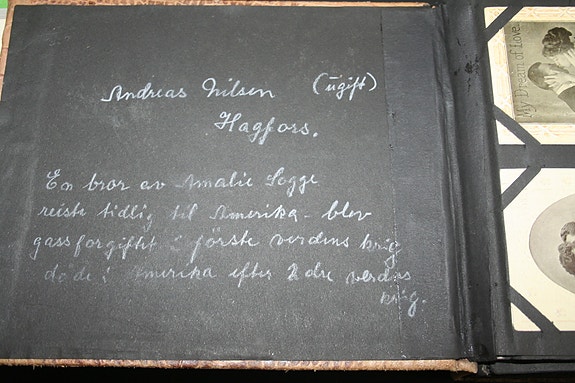 Andreas Nilsen (ugift)
Hagfors.
En bror av Amalie Sogge
reiste tidlig til Amerika - blev
gassforgiftet i förste verdens krig
døde i Amerika efter 2dre verdens
krig.
My Dream of Love